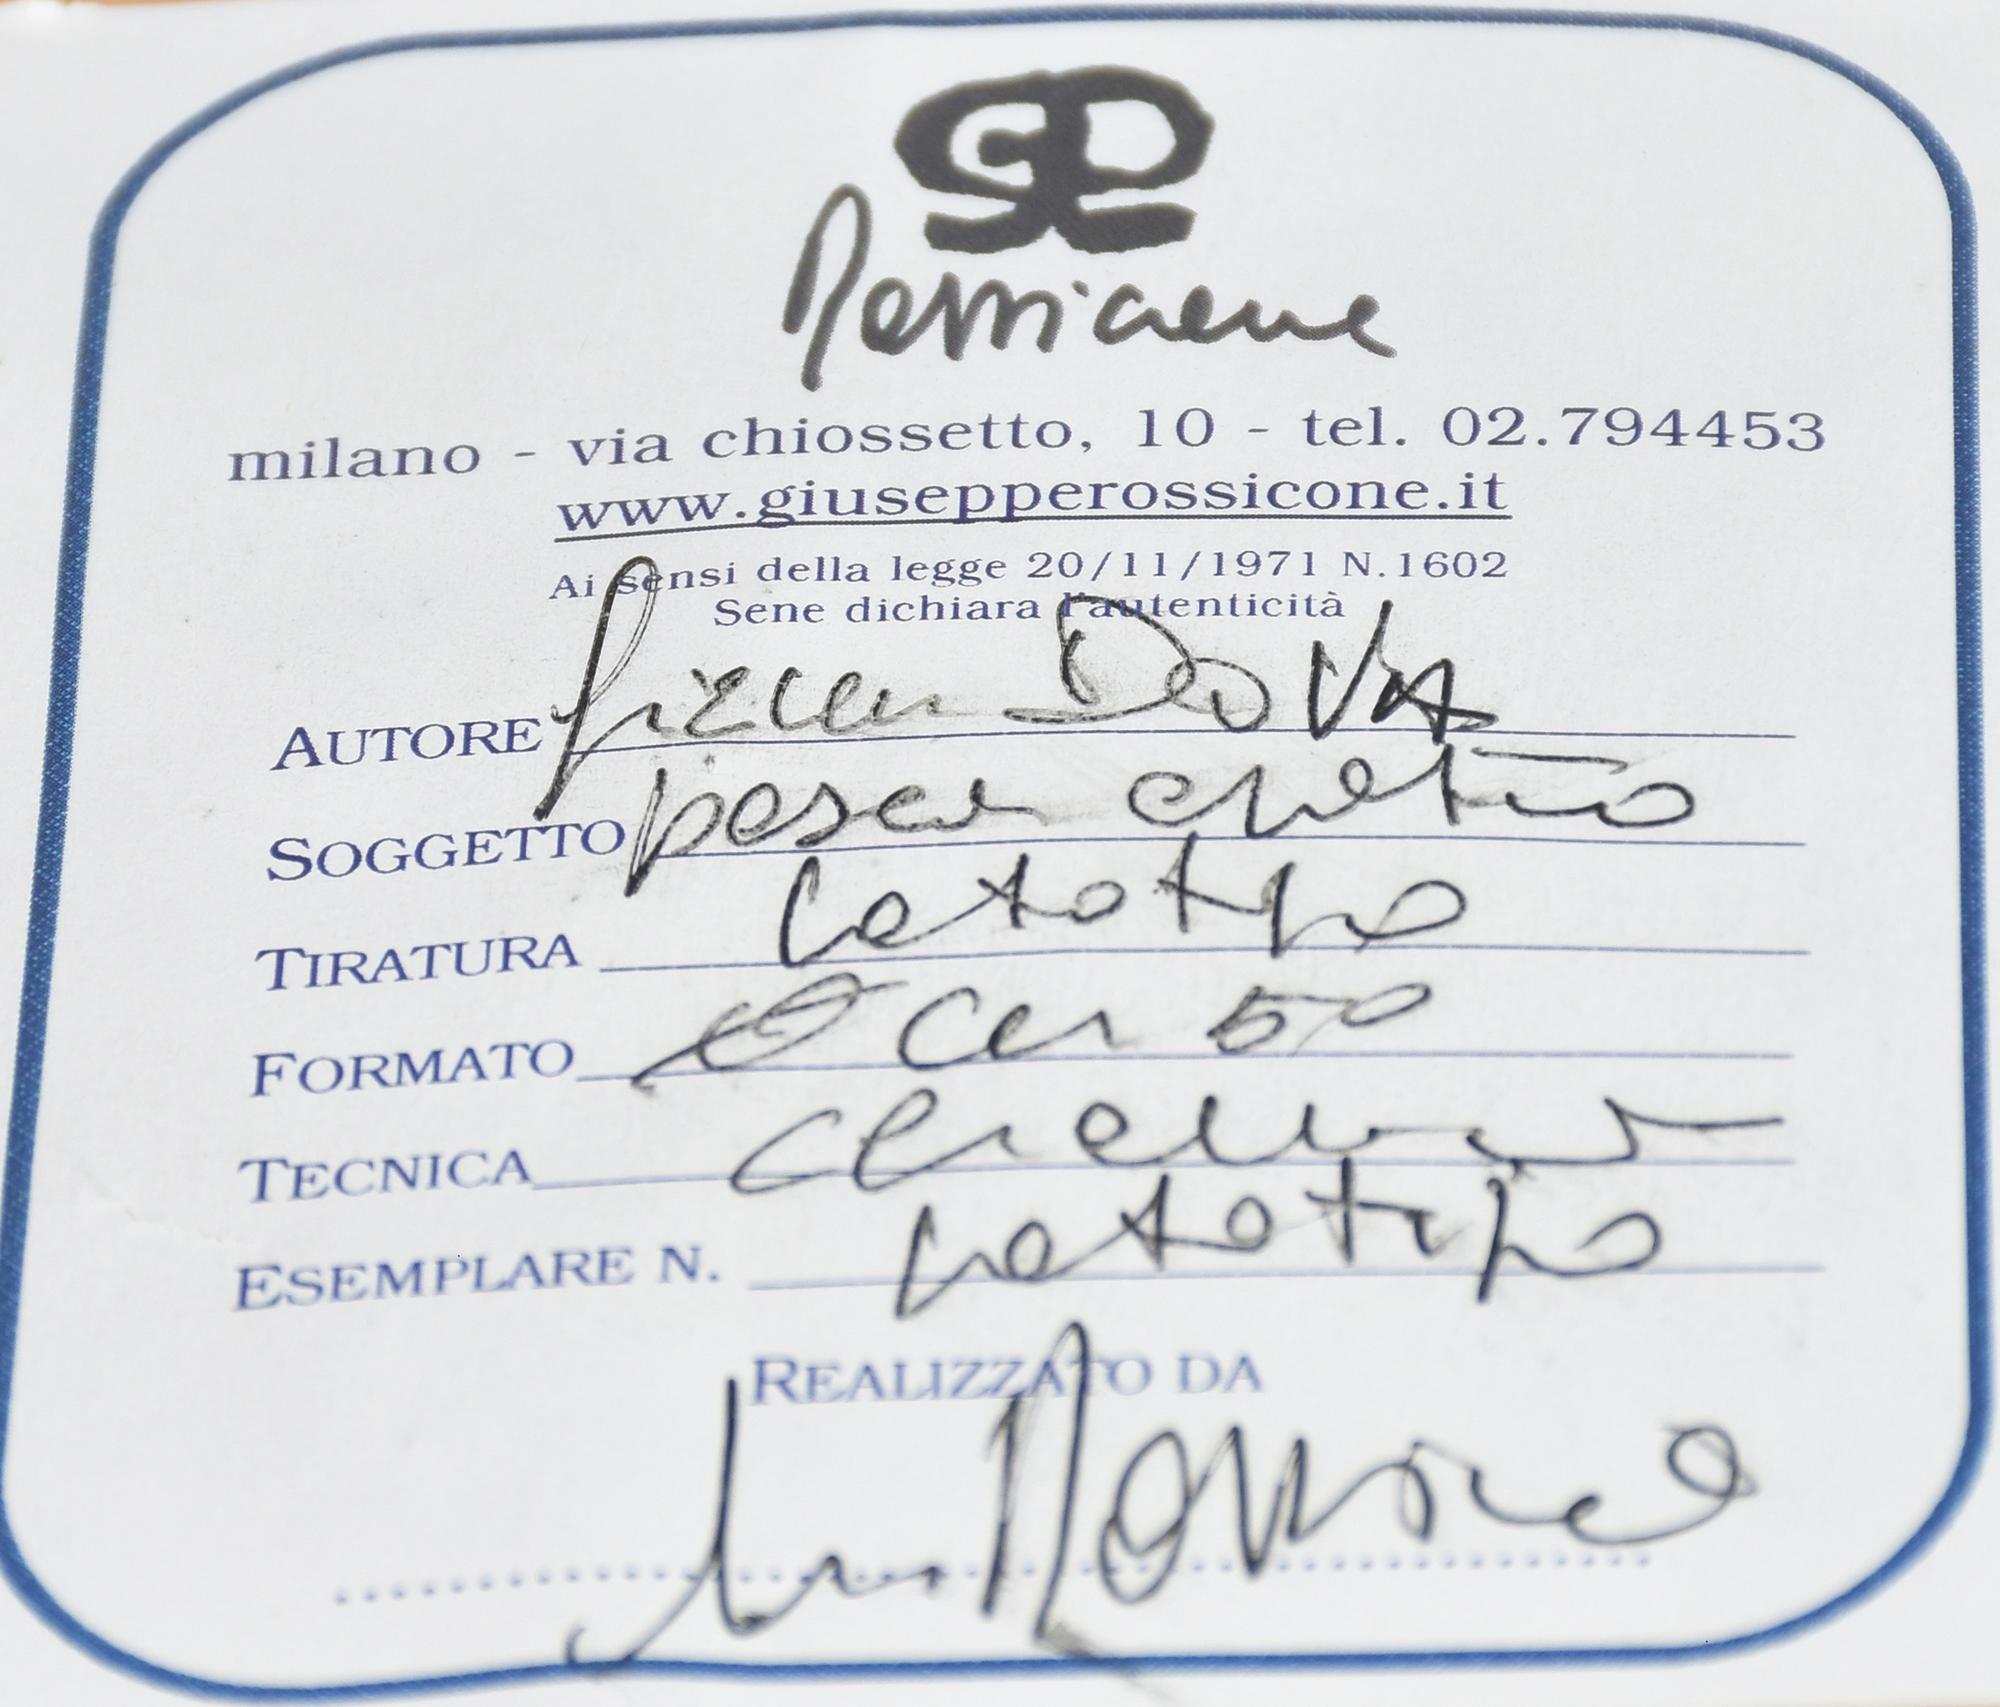 GR
Rossicone
milano - via chiossetto, 10 - tel. 02.794453
www.giusepperossicone.it
Ai sensi della legge 20/11/1971 N.1602
Sene dichiara l'autenticità
AUTORE Gianni DOVA
SOGGETTO pesce
TIRATURA Prototipo
FORMATO Ø cm 50
TECNICA ceramica
ESEMPLARE N. Prototipo
REALIZZATO DA
Rossicone